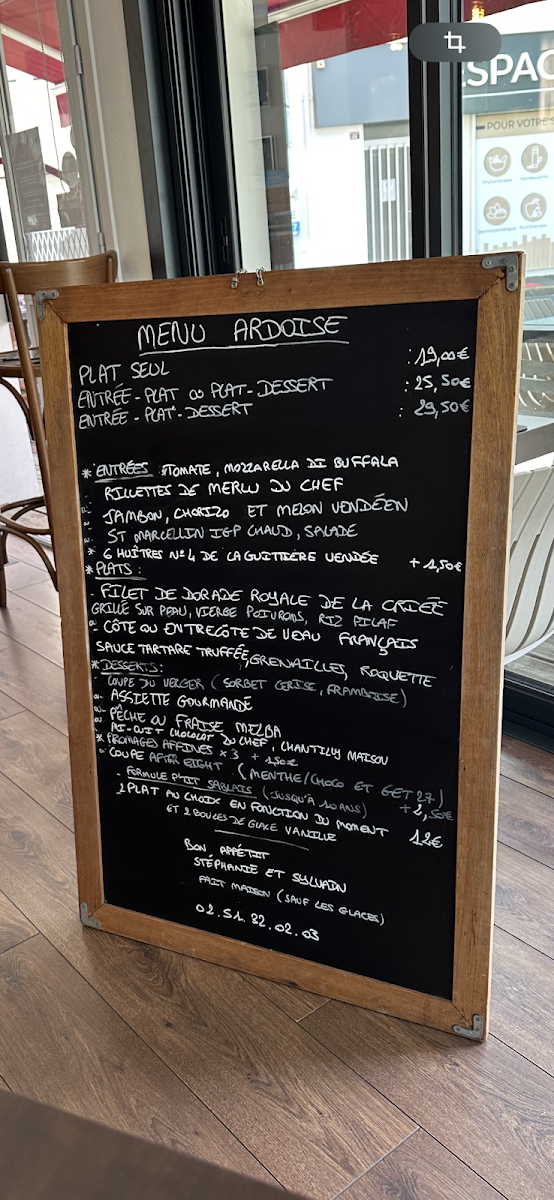 SPAC
POUR VOTRE S
MENU ARDOISE
PLAT SEUL : 19,00€
ENTRÉE - PLAT OU PLAT - DESSERT : 25,50€
ENTRÉE - PLAT - DESSERT : 29,50€
* ENTRÉES TOMATE, MOZZARELLA DI BUFFALA
RILLETTES DE MERLU DU CHEF
JAMBON, CHORIZO ET MELON VENDÉEN
ST MARCELLIN IGP CHAUD, SALADE
* 6 HUÎTRES N°4 DE LA GUITTIÈRE VENDÉE + 1,50€
* PLATS :
- FILET DE DORADE ROYALE DE LA CRIÉE
GRILLÉ SUR PEAU, VIERGE POIVRONS, RIZ PILAF
CÔTE OU ENTRECÔTE DE VEAU FRANÇAIS
SAUCE TARTARE TRUFFÉE, GRENAILLES, ROQUETTE
* DESSERTS :
COUPE DU VERGER (SORBET CERISE, FRAMBOISE)
ASSIETTE GOURMANDE
PÊCHE OU FRAISE MELBA
MI-CUIT CHOCOLAT DU CHEF, CHANTILLY MAISON
* FROMAGES AFFINES x 3 + 1,50€
COUPE AFTER EIGHT (MENTHE/CHOCO ET GET 27) + 2,50€
- FORMULE P'TIT SABLAIS (JUSQU'A 10 ANS)
PLAT AU CHOIX EN FONCTION DU MOMENT 12€
ET 2 BOULES DE GLACE VANILLE
BON APPÉTIT
STÉPHANIE ET SYLVAIN
FAIT MAISON (SAUF LES GLACES)
02.51.32.02.03